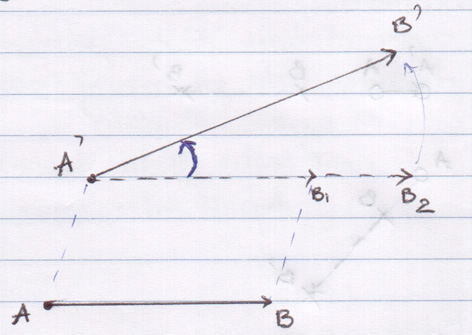 B'
A'
B₁ B₂
A B